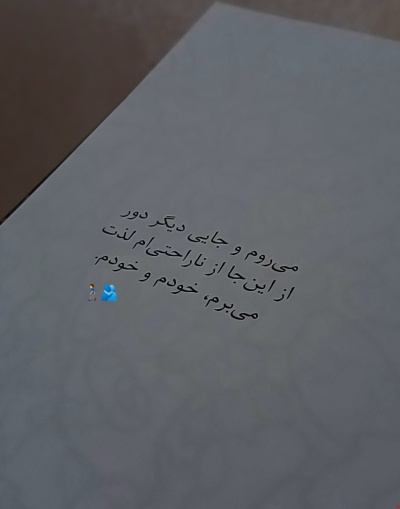 می‌روم و جایی دیگر دور
از این‌جا از ناراحتی‌ام لذت
می‌برم، خودم و خودم.